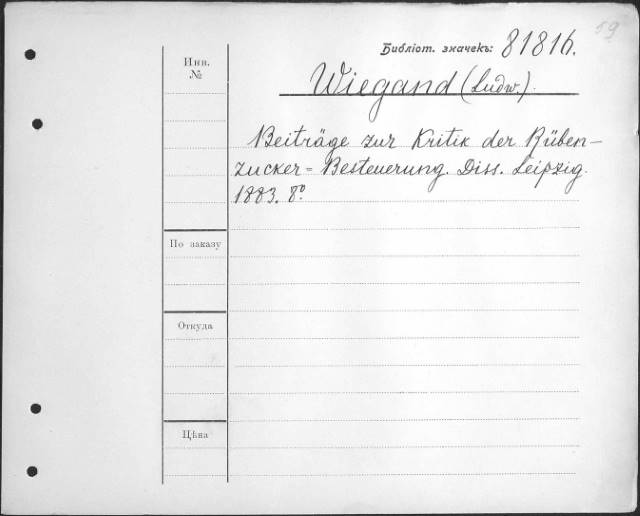 59
Библіот. значекъ: 81816.
Инв.
№
Wiegand (Ludw.).
Beiträge zur Kritik der Rüben-
zucker = Besteuerung. Diss. Leipzig.
1883. 8°.
По заказу
Откуда
Цѣна